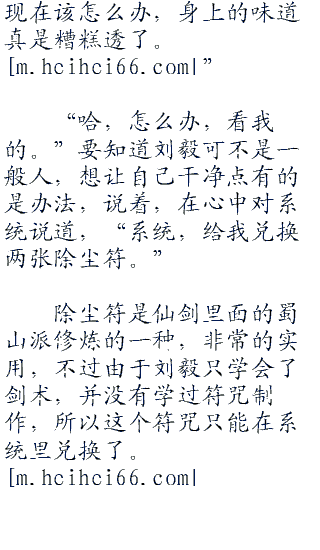 现在该怎么办，身上的味道
真是糟糕透了。
[m.hcihci66.com]”
“哈，怎么办，看我
的。”要知道刘毅可不是一
般人，想让自己干净点有的
是办法，说着，在心中对系
统说道，“系统，给我兑换
两张除尘符。”
除尘符是仙剑里面的蜀
山派修炼的一种，非常的实
用，不过由于刘毅只学会了
剑术，并没有学过符咒制
作，所以这个符咒只能在系
统里兑换了。
[m.hcihci66.com]